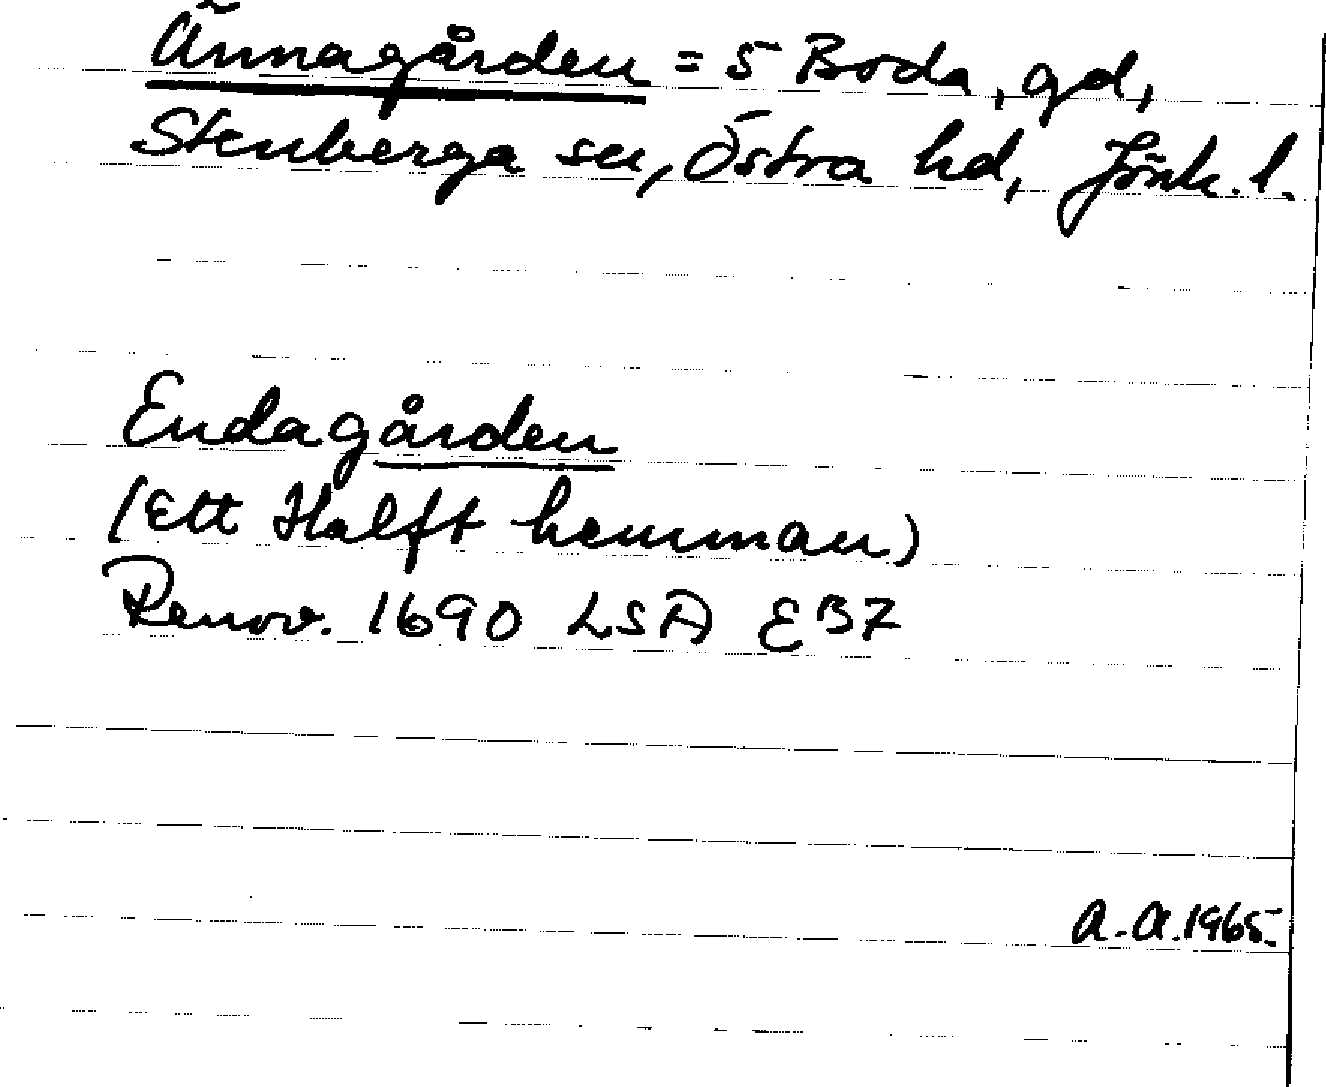 Ännagården = 5 Boda, gd,
Stenberga sn, Östra hd, Jönk. l.
Endagården
(Ett Halft hemman)
Renov. 1690 LSA EB7
A.A. 1965.